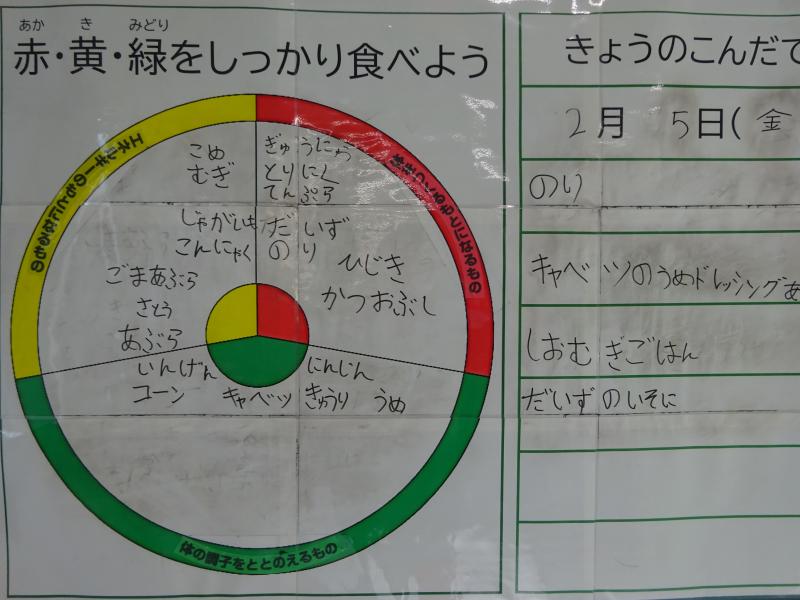 あか き みどり
赤・黄・緑をしっかり食べよう
エネルギーのもとになるもの
体をつくるもとになるもの
体の調子をととのえるもの
こめ
むぎ
じゃがいも
こんにゃく
ごまあぶら
さとう
あぶら
ぎゅうにゅう
とりにく
てんぷら
だいず
のり
ひじき
かつおぶし
いんげん
コーン
キャベツ
にんじん
きゅうり
うめ
きょうのこんだて
2月 5日(金
のり
キャベツのうめドレッシングあ
しおむぎごはん
だいずのいそに